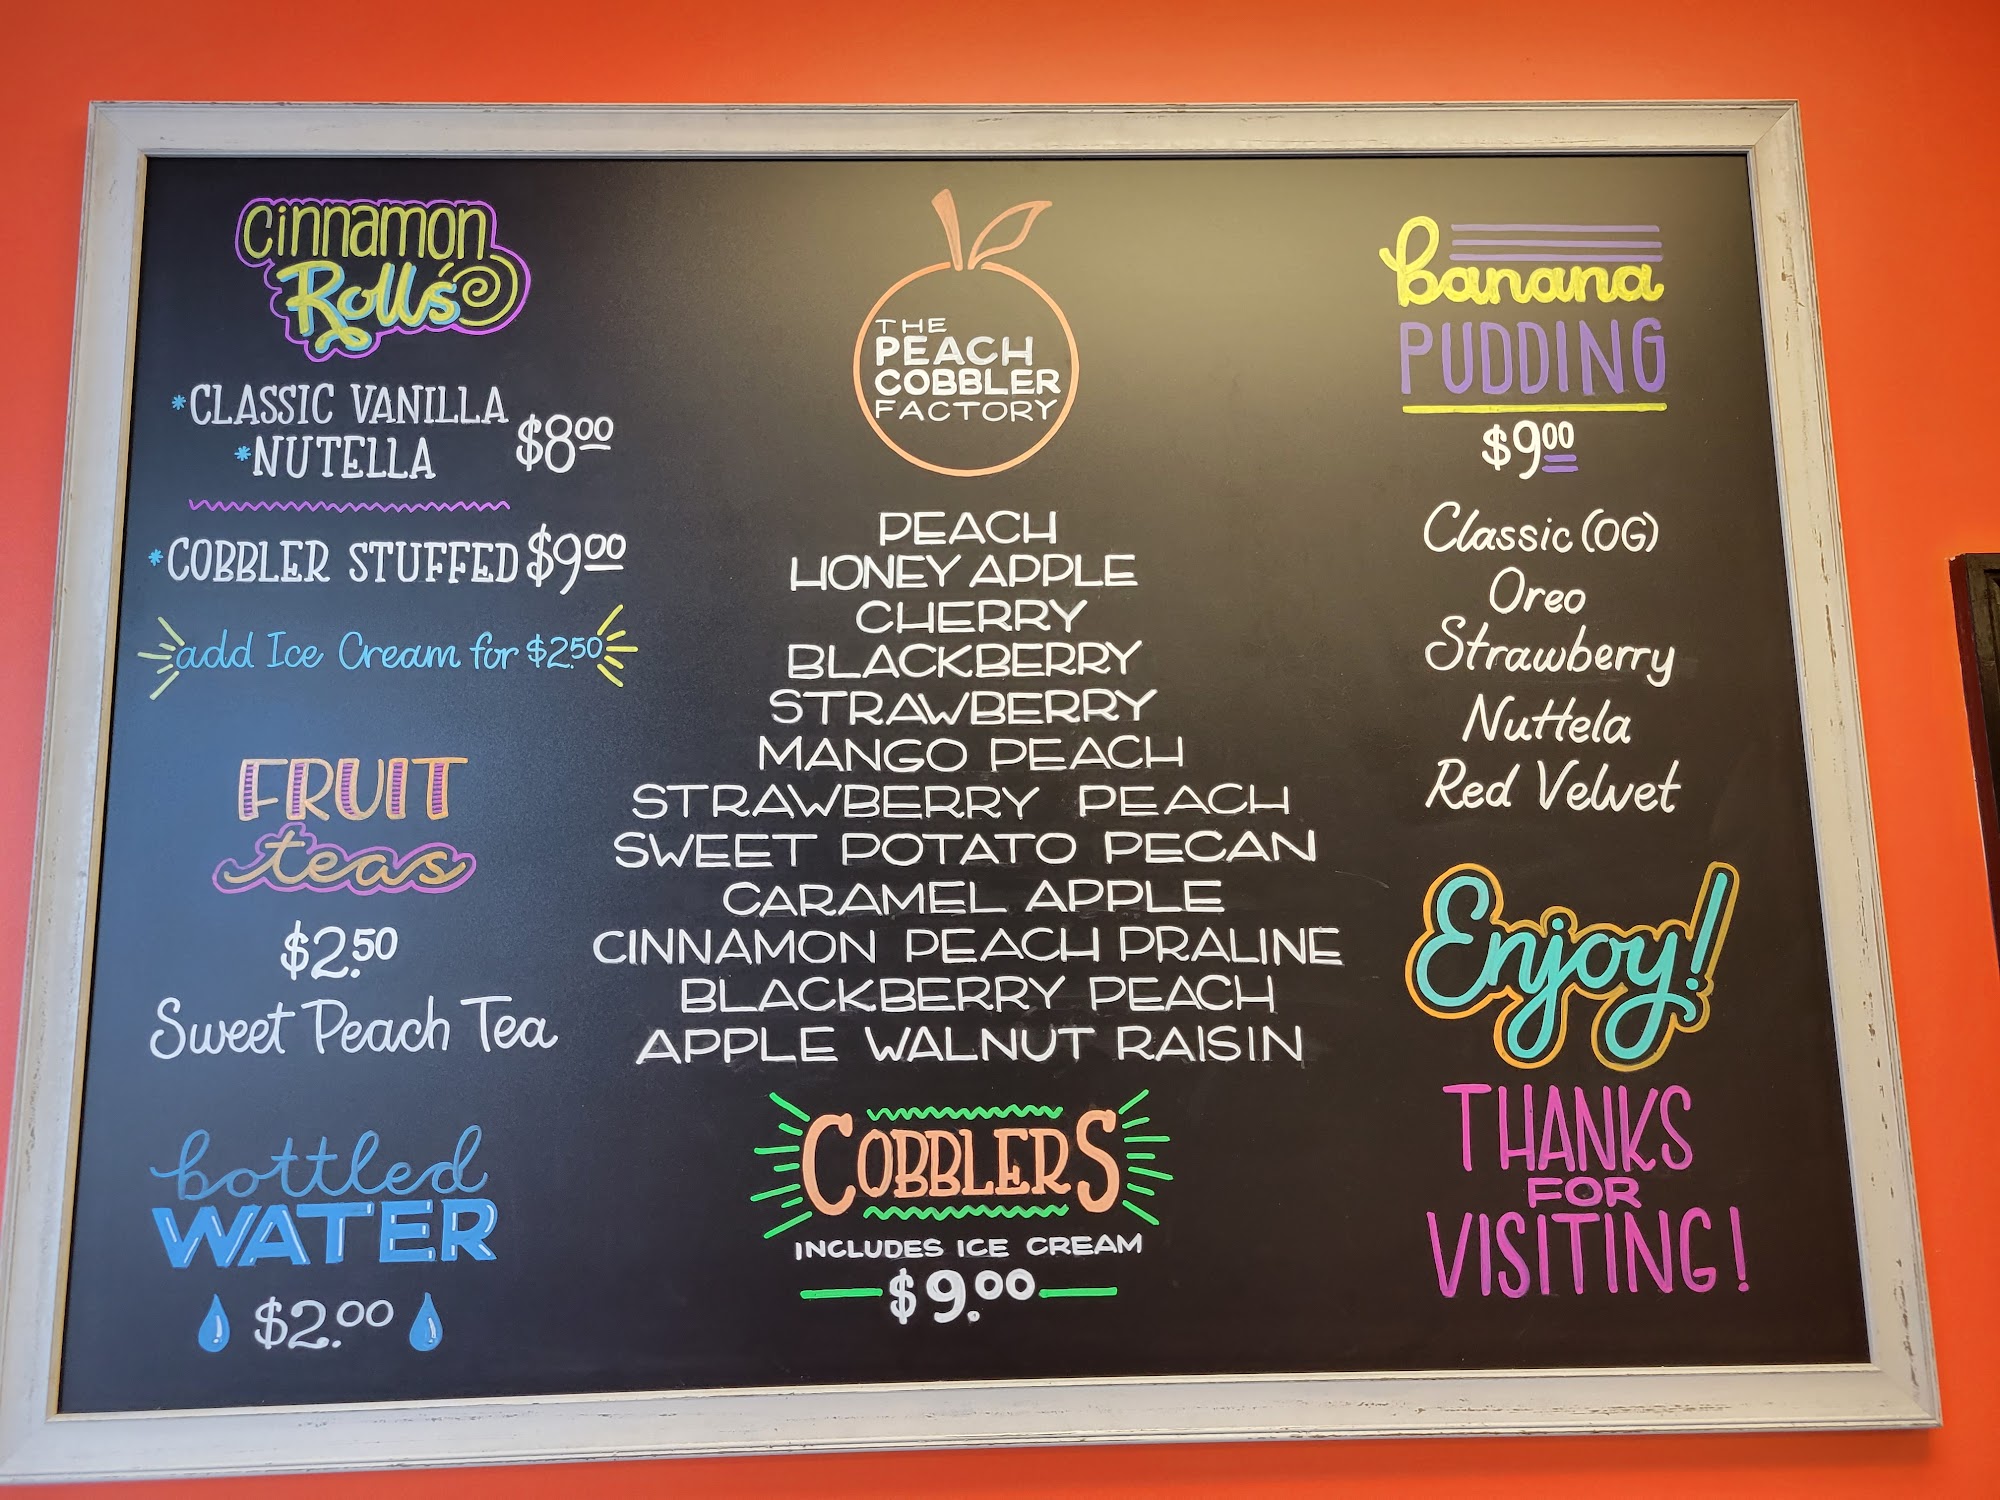 cinnamon
Rolls
*CLASSIC VANILLA
*NUTELLA
$8⁰⁰
*COBBLER STUFFED $9⁰⁰
add Ice Cream for $2.50
FRUIT
teas
$2.50
Sweet Peach Tea
bottled
WATER
$2.00
THE
PEACH
COBBLER
FACTORY
PEACH
HONEY APPLE
CHERRY
BLACKBERRY
STRAWBERRY
MANGO PEACH
STRAWBERRY PEACH
SWEET POTATO PECAN
CARAMEL APPLE
CINNAMON PEACH PRALINE
BLACKBERRY PEACH
APPLE WALNUT RAISIN
COBBLERS
INCLUDES ICE CREAM
$9.00
banana
PUDDING
$9⁰⁰
Classic (OG)
Oreo
Strawberry
Nuttela
Red Velvet
Enjoy!
THANKS
FOR
VISITING!